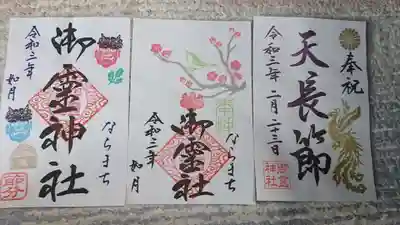 奉祝
天長節
令和三年 二月二十三日
御霊神社
奉拝
御霊社
ならまち
令和三年 如月
御靈神社
ならまち
令和三年 如月
節分